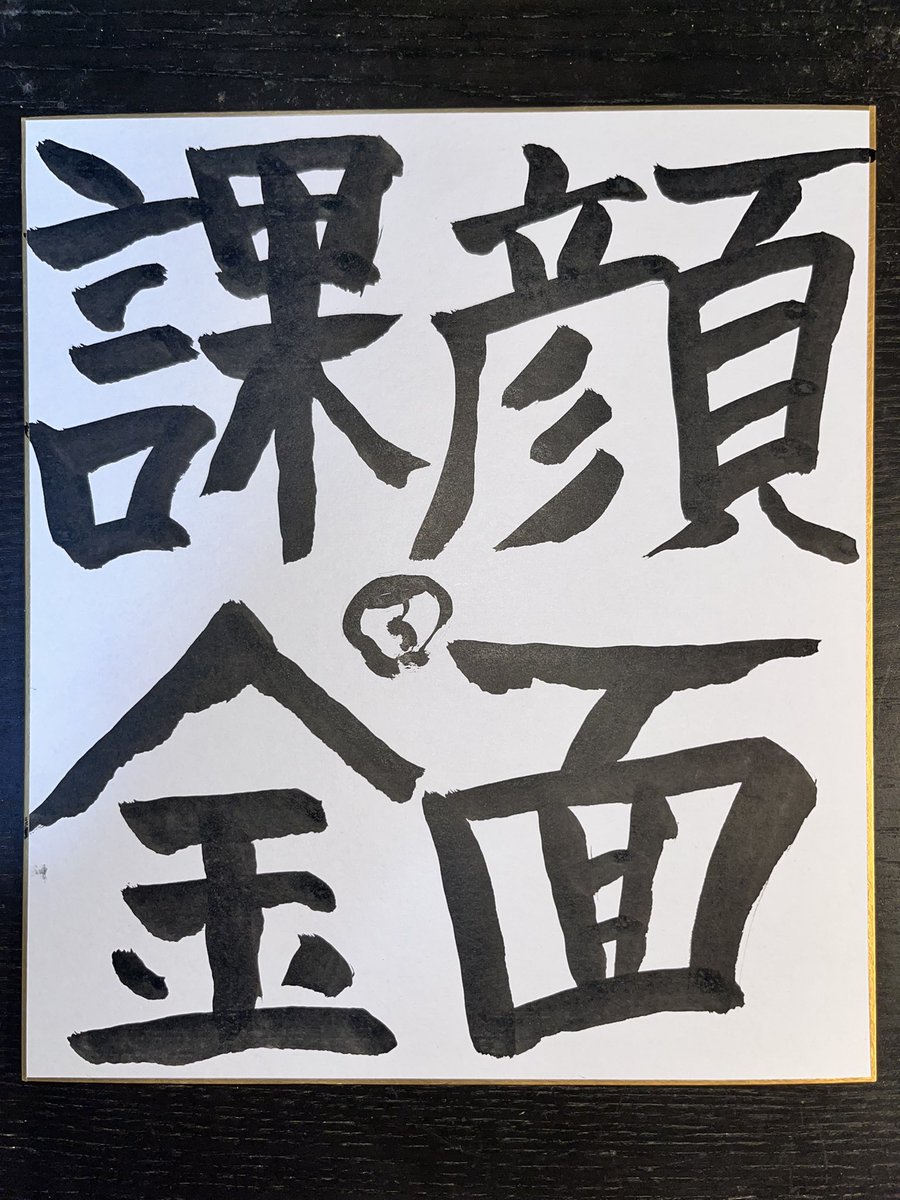 顔面
課金